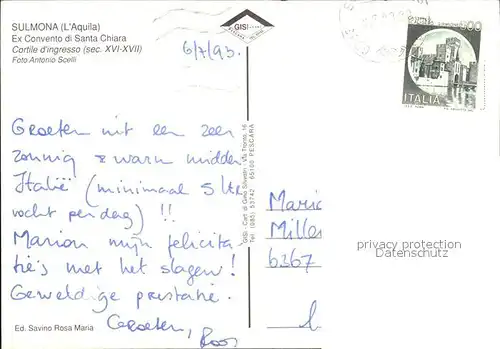 SULMONA (L'Aquila)
Ex Convento di Santa Chiara
Cortile d'ingresso (sec. XVI-XVII)
Foto Antonio Scelli
6/7/93.
GISI
500
ITALIA
Groeten uit een zeer
zonnig & warm midden
Italië (minimaal 5 ltr
vocht per dag) !!
Marion mijn felicita-
tie's met het slagen!
Geweldige prestatie.
Groeten, Roos
Ed. Savino Rosa Maria
GISI - Cart. di Gino Silvestri - Via Tronto, 16
Tel. (085) 53742 - 65100 PESCARA
Mario
Miller
6367
privacy protection
Datenschutz